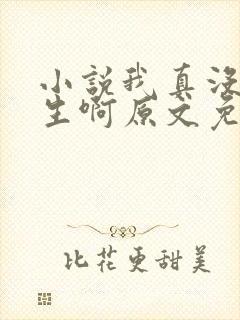 小说我真没
生啊原文免
比花更甜美